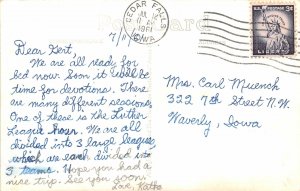 Post Card
CEDAR FALLS
1961
IOWA
U.S. POSTAGE 3¢
LIBERTY
7/11
Dear Gert,
We are all ready for
bed now. Soon it will be
time for devotions. There
are many different sessions.
One of these is the Luther
League hour. We are all
divided into 3 large leagues,
which are each divided into
3 teams. Hope you had a
nice trip. See you soon.
Love, Kathy
Mrs. Carl Muench
322 7th Street N.W.
Waverly, Iowa